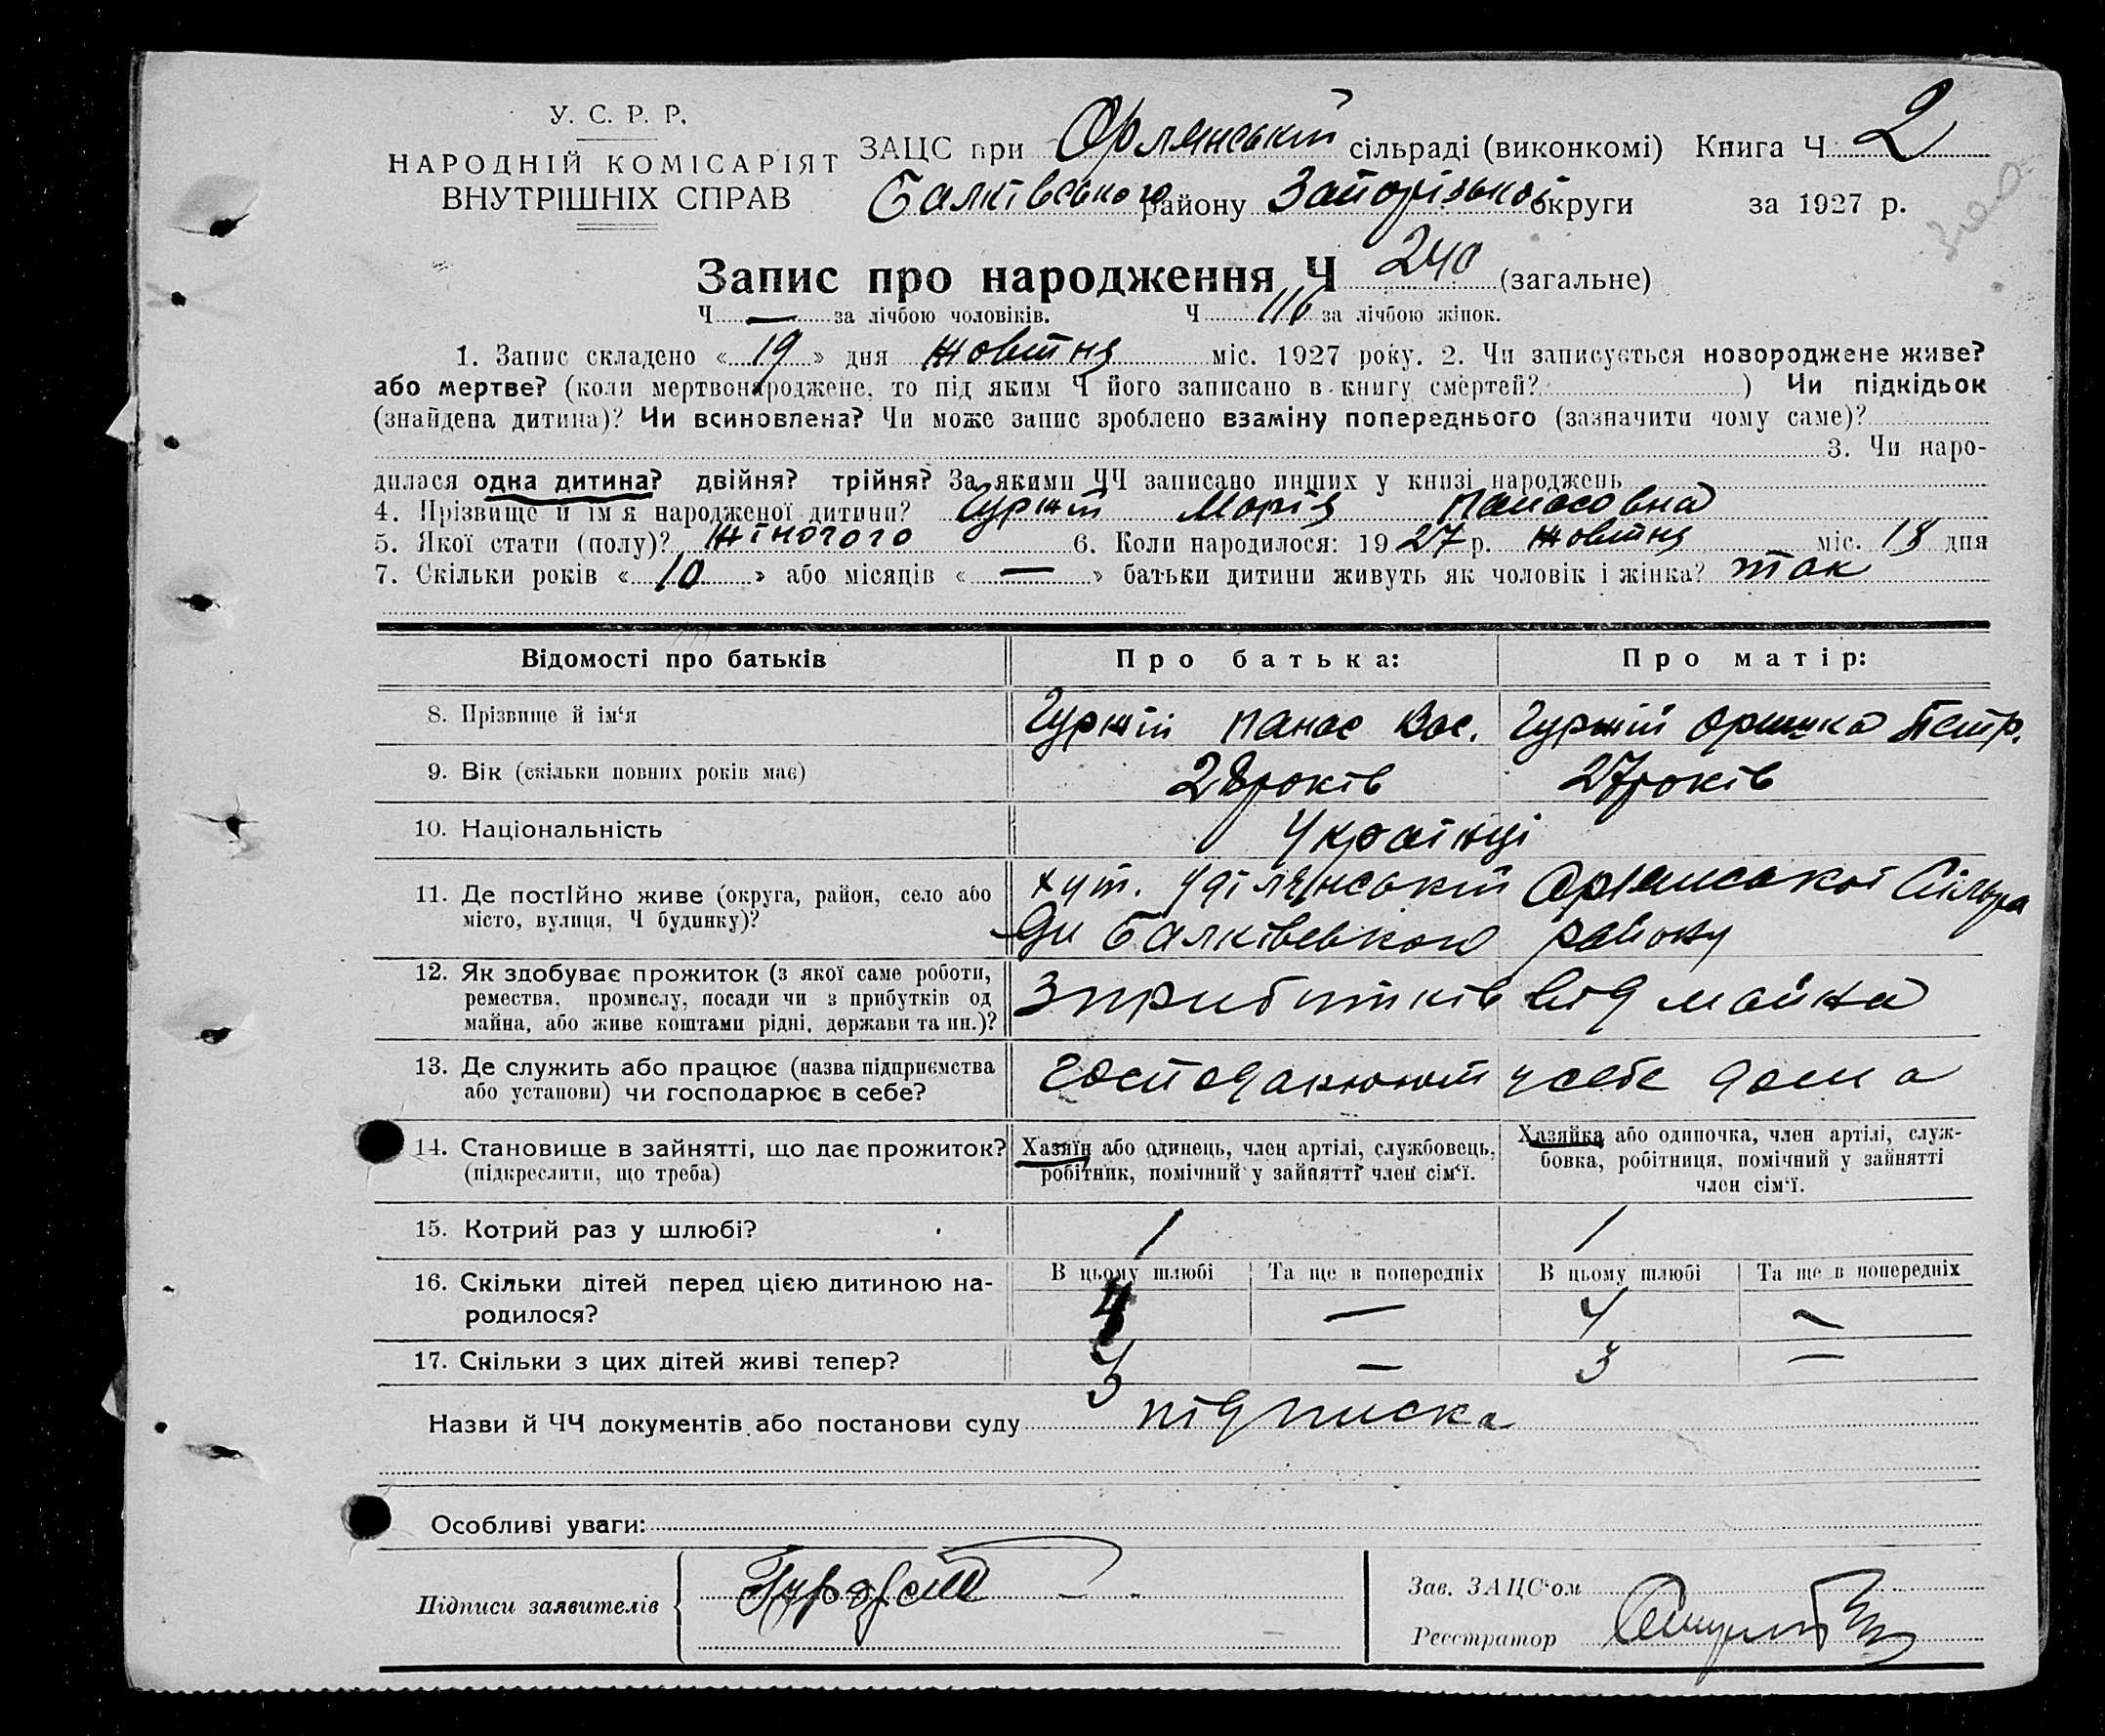 У. С. Р. Р.
НАРОДНІЙ КОМІСАРІЯТ
ВНУТРІШНІХ СПРАВ
ЗАЦС при Орлянській сільраді (виконкомі) Книга Ч. 2
Балківського району Запорізької округи за 1927 р.
Запис про народження Ч 240 (загальне)
Ч — за лічбою чоловіків. Ч 116 за лічбою жінок.
1. Запис складено « 19 » дня жовтня міс. 1927 року. 2. Чи записується новороджене живе?
або мертве? (коли мертвонароджене, то під яким Ч його записано в книгу смертей? ) Чи підкідьок
(знайдена дитина)? Чи всиновлена? Чи може запис зроблено взаміну попереднього (зазначити чому саме)?
3. Чи наро-
дилася одна дитина? двійня? трійня? За якими ЧЧ записано инших у книзі народжень
4. Прізвище й ім'я народженої дитини? Гуржій Марія Панасовна
5. Якої стати (полу)? жіночого 6. Коли народилося: 1927 р. жовтня міс. 18 дня
7. Скільки років « 10 » або місяців « — » батьки дитини живуть як чоловік і жінка? так
Відомості про батьків Про батька: Про матір:
8. Прізвище й ім'я Гуржій Панас Вас. Гуржій Оришка Петр.
9. Вік (скільки повних років має) 28 років 27 років
10. Національність Українці
11. Де постійно живе (округа, район, село або хут. Уділянський Орлянської Сільра
місто, вулиця, Ч будинку)? ди Балківського району
12. Як здобуває прожиток (з якої саме роботи,
ремества, промислу, посади чи з прибутків од З прибитків від майна
майна, або живе коштами рідні, держави та ин.)?
13. Де служить або працює (назва підприємства господарюют у себе дома
або установи) чи господарює в себе?
14. Становище в зайнятті, що дає прожиток? Хазяїн або одинець, член артілі, службовець, Хазяйка або одиночка, член артілі, служ-
(підкреслити, що треба) робітник, помічний у зайнятті член сім'ї. бовка, робітниця, помічний у зайнятті
член сім'ї.
15. Котрий раз у шлюбі? 1 1
16. Скільки дітей перед цією дитиною на- В цьому шлюбі Та ще в попередніх В цьому шлюбі Та ще в попередніх
родилося? 4 — 4 —
17. Скільки з цих дітей живі тепер? 3 — 3 —
Назви й ЧЧ документів або постанови суду підписка
Особливі уваги:
Підписи заявителів
Зав. ЗАЦС'ом
Реєстратор